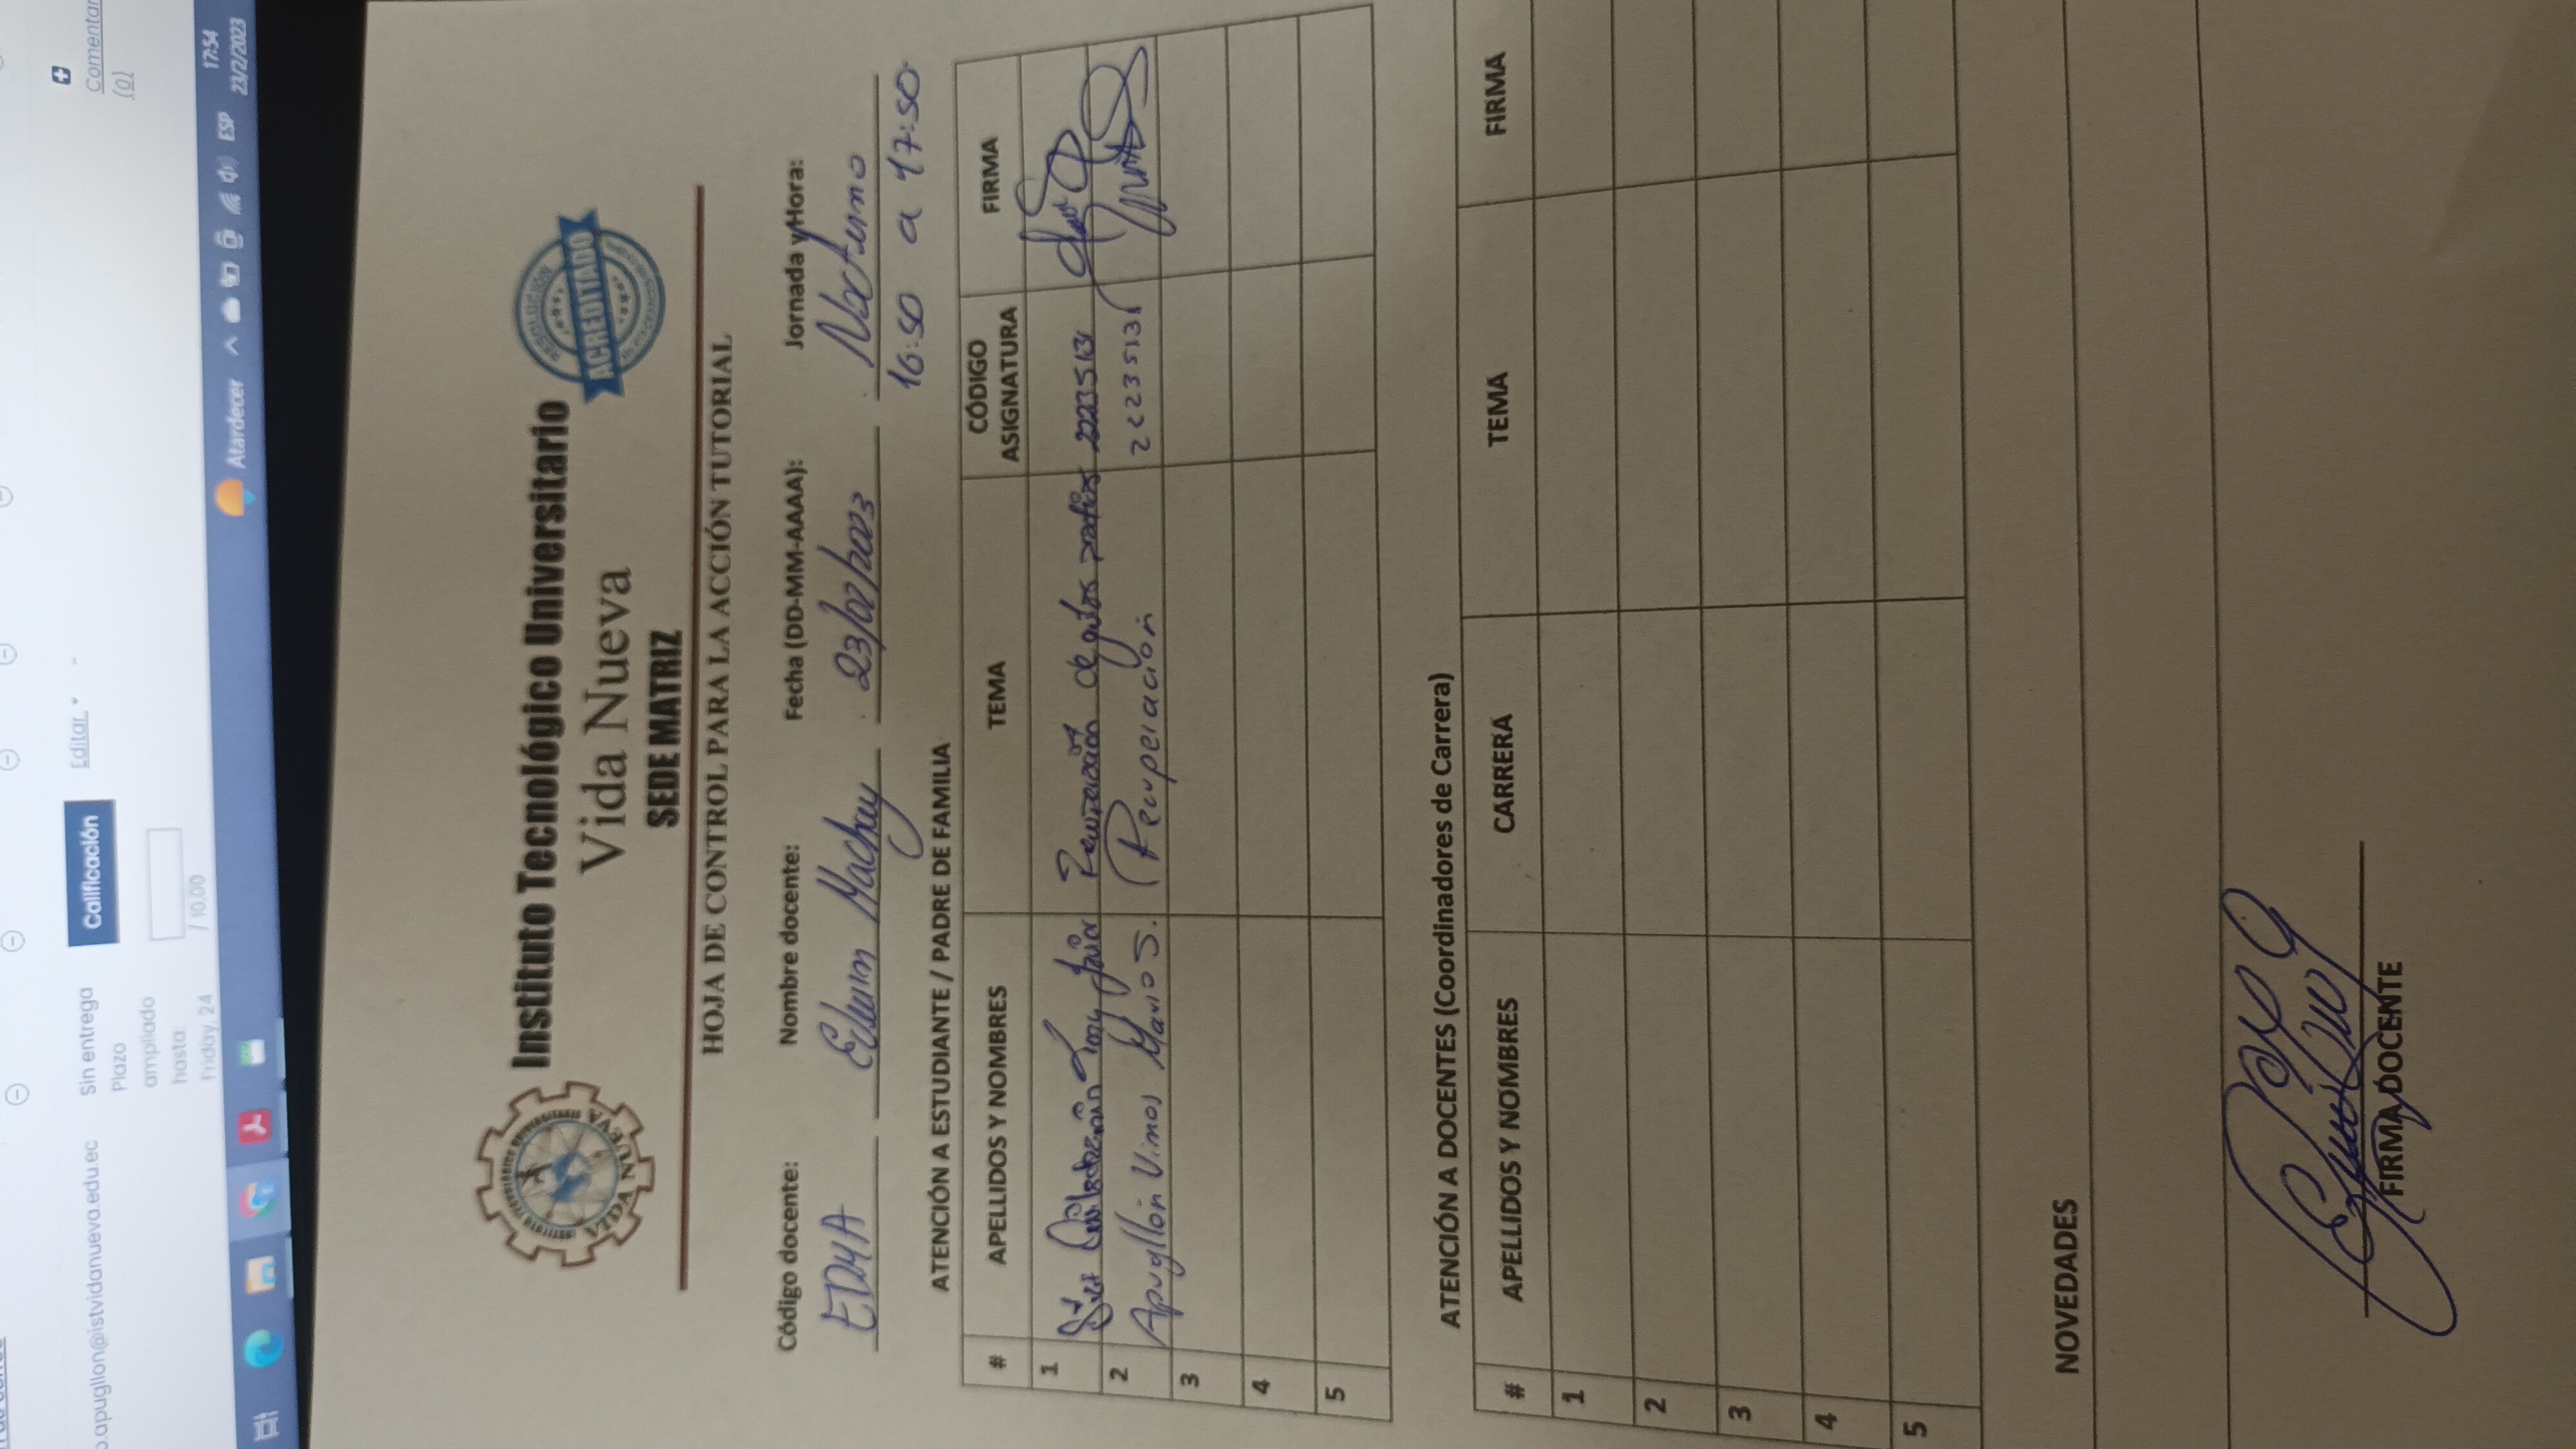 o.apugllon@istvidanueva.edu.ec
Sin entrega
Plazo
ampliado
hasta:
Friday, 24
Calificación
/ 10,00
Editar
-
Comentar
(0)
Atardecer
ESP
17:54
23/2/2023
INSTITUTO TECNOLÓGICO UNIVERSITARIO
VIDA NUEVA
Instituto Tecnológico Universitario
Vida Nueva
SEDE MATRIZ
RESOLUCIÓN
ACREDITADO
HOJA DE CONTROL PARA LA ACCIÓN TUTORIAL
Código docente: Nombre docente: Fecha (DD-MM-AAAA): Jornada y Hora:
EDMA Edwin Machay 23/02/2023 Nocturno
16:50 a 17:50
ATENCIÓN A ESTUDIANTE / PADRE DE FAMILIA
# APELLIDOS Y NOMBRES TEMA CÓDIGO ASIGNATURA FIRMA
1 Javier Recuperación de 22235131
2 Apugllón Vimos Mario S. Recuperación 22235131
3
4
5
ATENCIÓN A DOCENTES (Coordinadores de Carrera)
# APELLIDOS Y NOMBRES CARRERA TEMA FIRMA
1
2
3
4
5
NOVEDADES
FIRMA DOCENTE